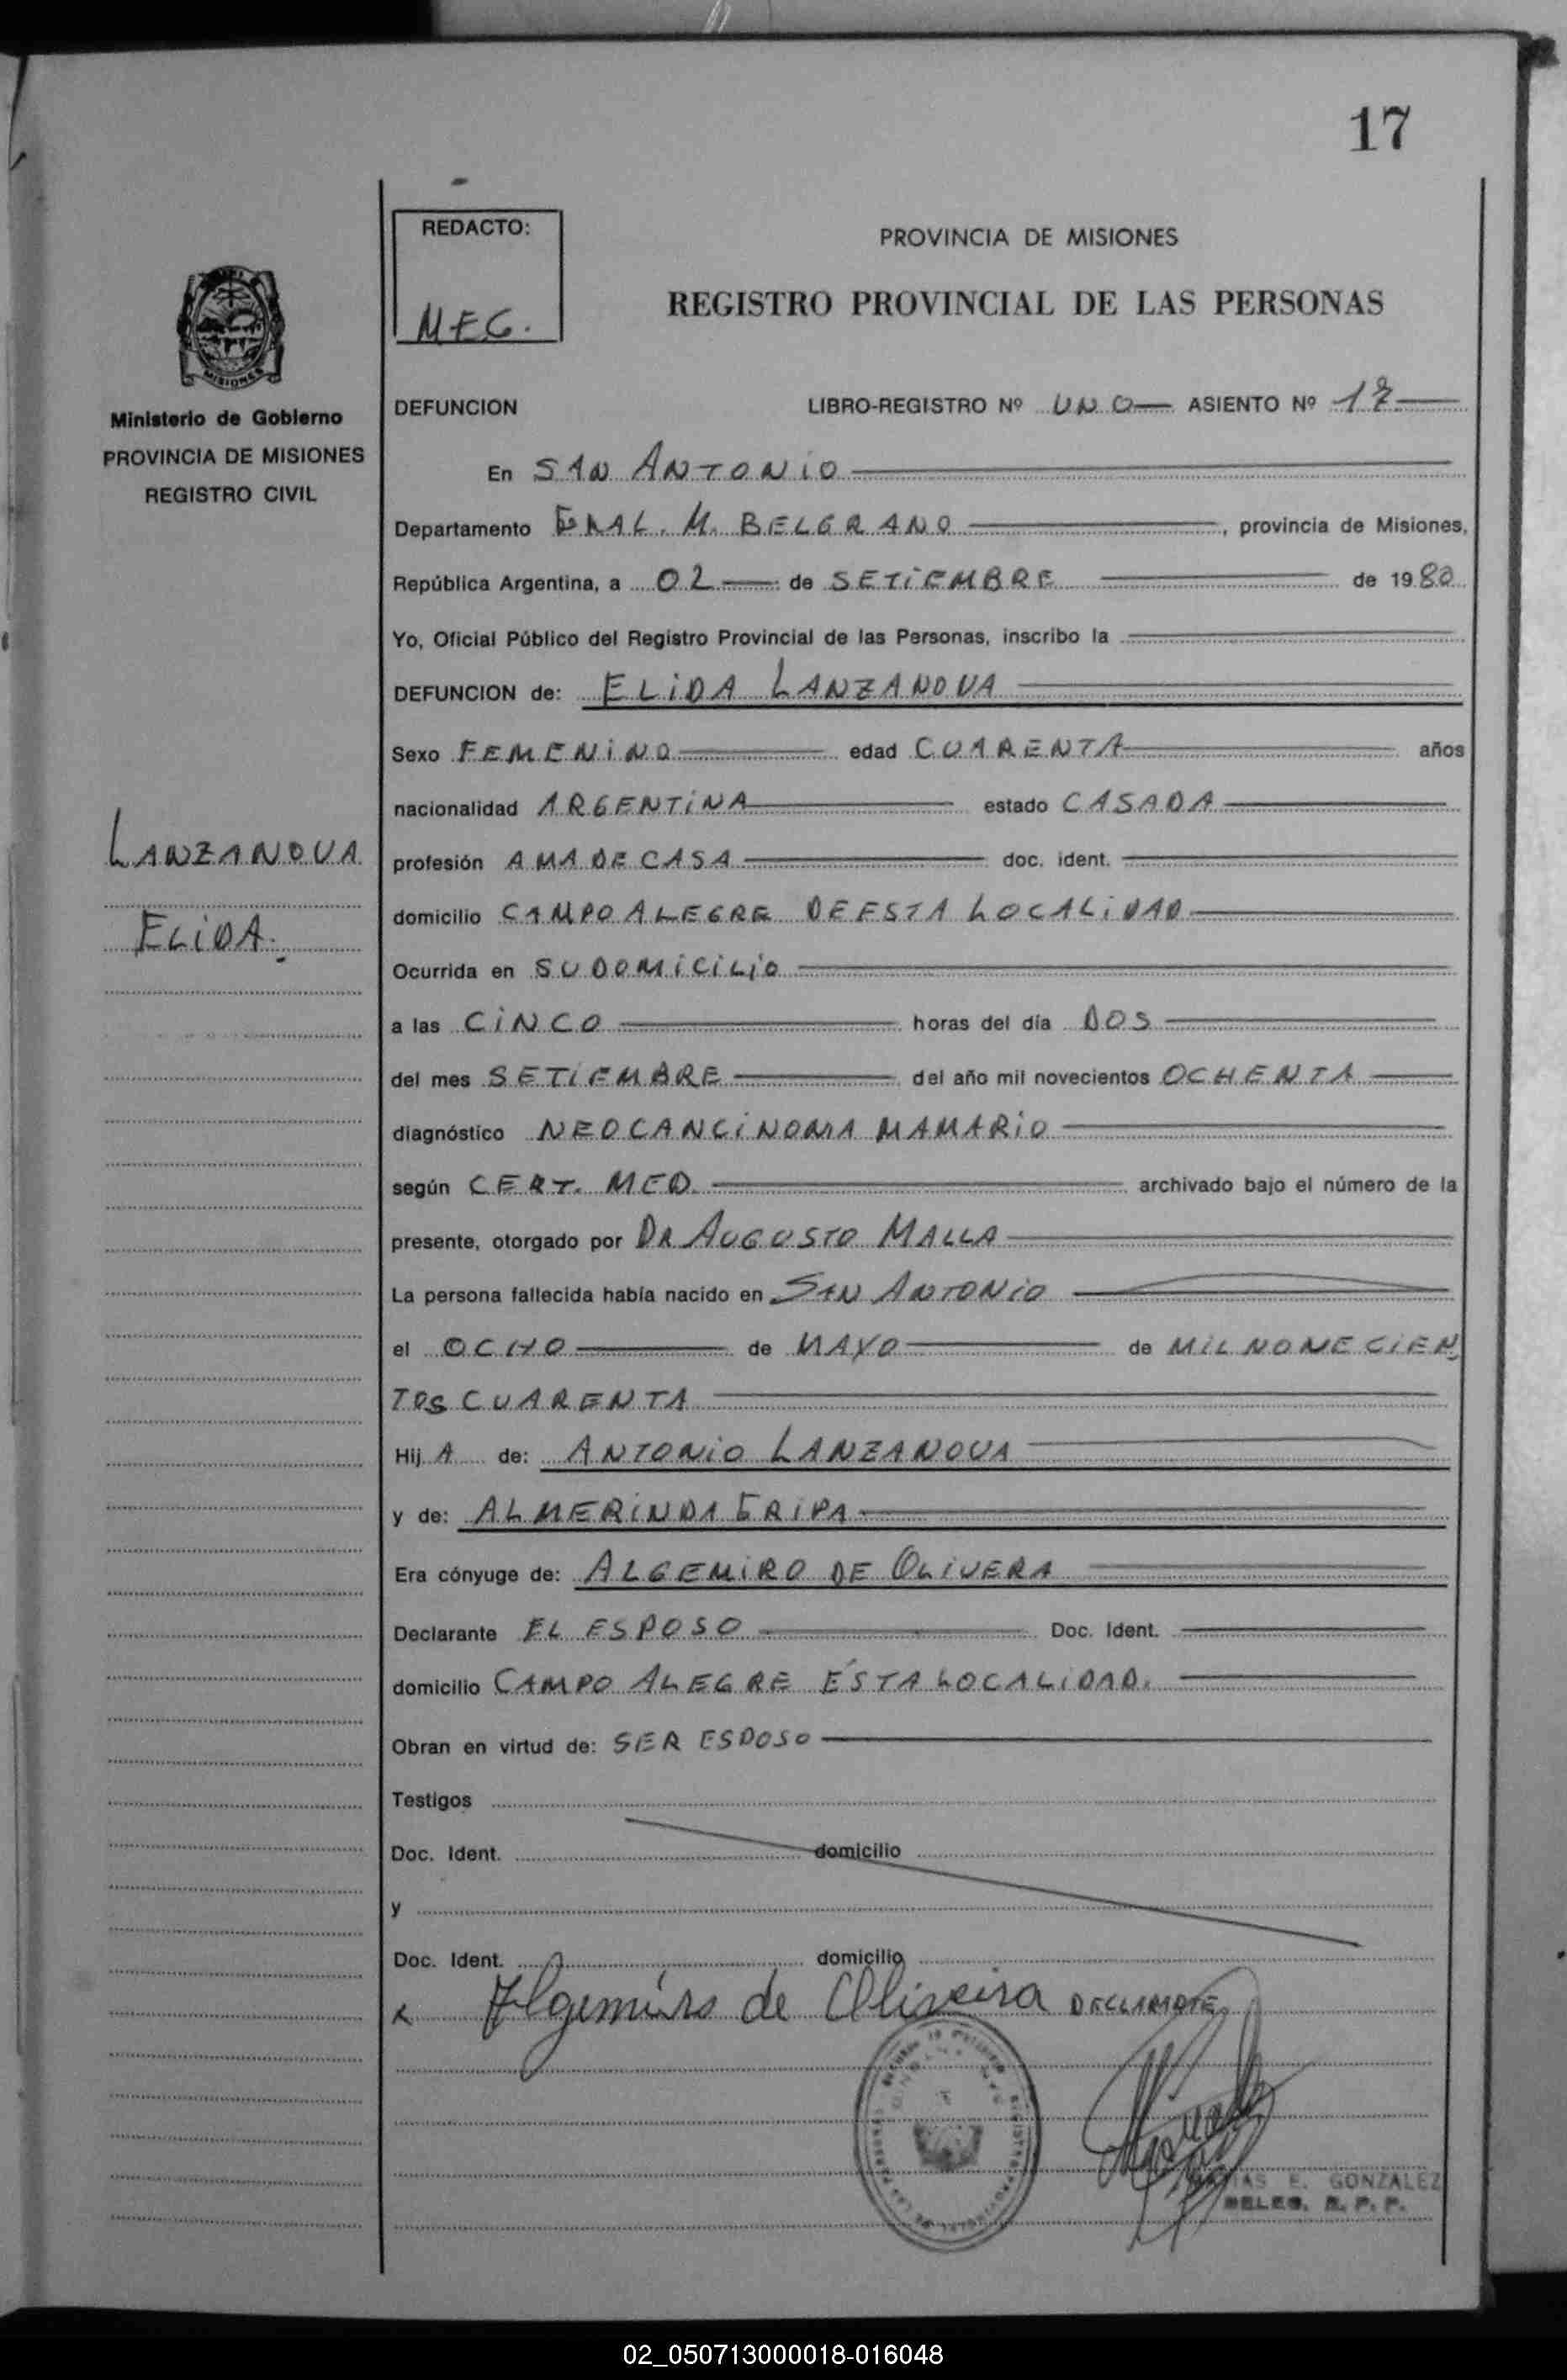 17
REDACTO:
MEG.
PROVINCIA DE MISIONES
REGISTRO PROVINCIAL DE LAS PERSONAS
MISIONES
Ministerio de Gobierno
PROVINCIA DE MISIONES
REGISTRO CIVIL
DEFUNCION LIBRO-REGISTRO Nº UNO ASIENTO Nº 17
En SAN ANTONIO
Departamento GRAL. M. BELGRANO, provincia de Misiones,
República Argentina, a 02 de SETIEMBRE de 1980
Yo, Oficial Público del Registro Provincial de las Personas, inscribo la
DEFUNCION de: ELIDA LANZANOVA
Sexo FEMENINO edad CUARENTA años
nacionalidad ARGENTINA estado CASADA
LANZANOVA
ELIDA.
profesión AMA DE CASA doc. ident.
domicilio CAMPO ALEGRE DE ESTA LOCALIDAD
Ocurrida en SU DOMICILIO
a las CINCO horas del día DOS
del mes SETIEMBRE del año mil novecientos OCHENTA
diagnóstico NEOCANCINOMA MAMARIO
según CERT. MED. archivado bajo el número de la
presente, otorgado por DR AUGUSTO MALLA
La persona fallecida había nacido en SAN ANTONIO
el OCHO de MAYO de MIL NONECIEN
TOS CUARENTA
Hij A de: ANTONIO LANZANOVA
y de: ALMERINDA GRIPA
Era cónyuge de: ALGEMIRO DE OLIVERA
Declarante EL ESPOSO Doc. Ident.
domicilio CAMPO ALEGRE ESTA LOCALIDAD.
Obran en virtud de: SER ESPOSO
Testigos
Doc. Ident. domicilio
y
Doc. Ident. domicilio
x Algemiro de Oliveira DECLARANTE
E. GONZALEZ
DELEG. R. P. P.
02_050713000018-016048